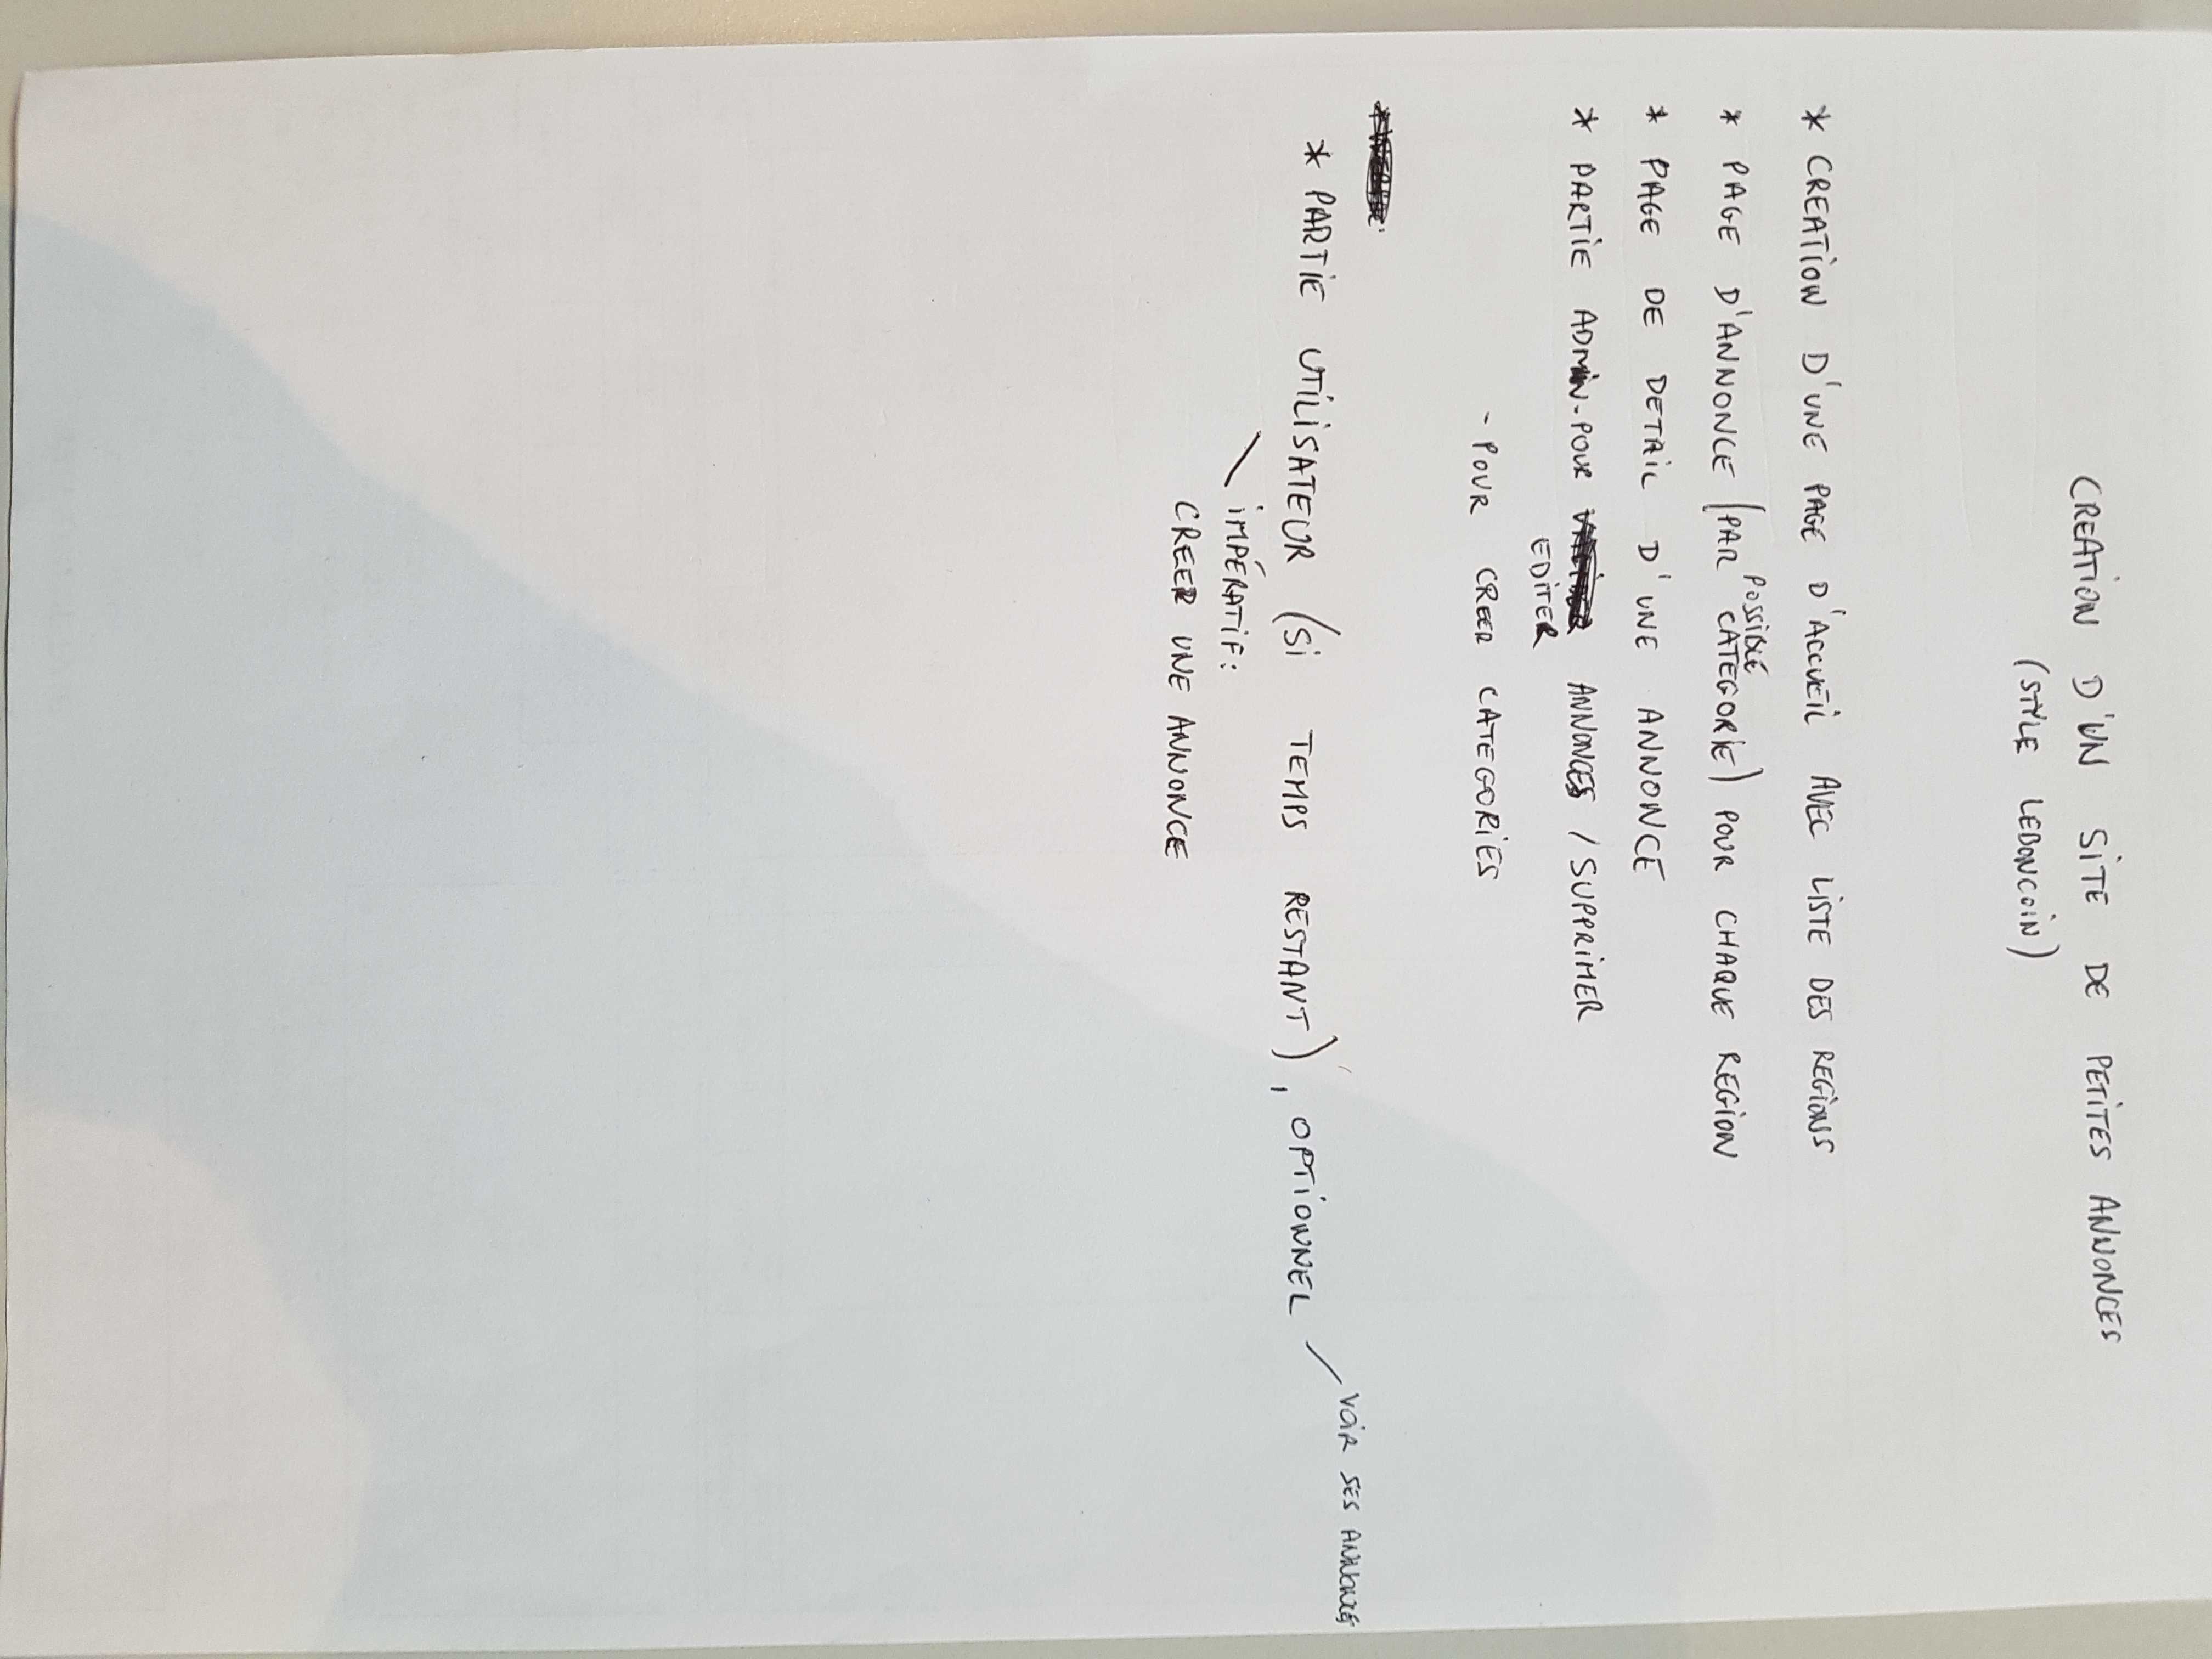 CREATION D'UN SITE DE PETITES ANNONCES
(STYLE LEBONCOIN)
* CREATION D'UNE PAGE D'ACCUEIL AVEC LISTE DES REGIONS
POSSIBLE
* PAGE D'ANNONCE (PAR CATEGORIE) POUR CHAQUE REGION
* PAGE DE DETAIL D'UNE ANNONCE
* PARTIE ADMIN - POUR ANNONCES / SUPPRIMER
EDITER
- POUR CREER CATEGORIES
* PARTIE UTILISATEUR (SI TEMPS RESTANT), OPTIONNEL / VOIR SES ANNONCES
IMPÉRATIF:
CREER UNE ANNONCE